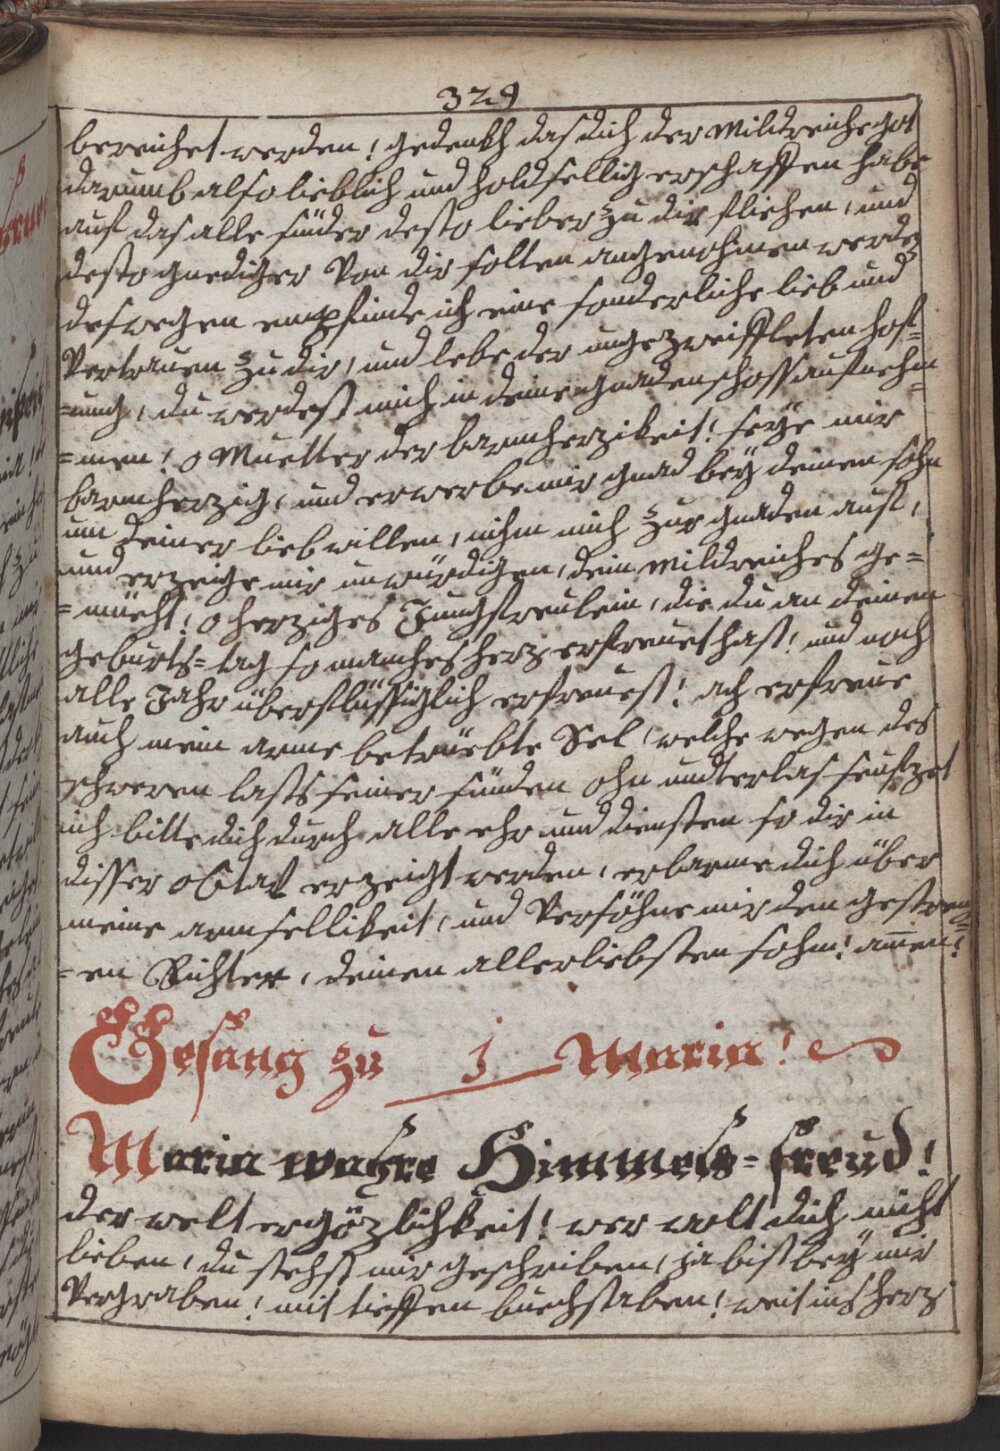 329
bereichet werden! gedenkh das dich der Mildreiche got
darumb also lieblich und holdsellig erschaffen habe
auf das alle sünder desto lieber zu dir fliehen, und
desto gnediger von dir solten angenohmen werde
deswegen empfinde ich eine sonderliche lieb und
Vertrauen zu dir, und lebe der ungezweiffleten hof=
=nung, du werdest mich in deine gnadenschoss aufnehm
=men! o Muetter der barmherzikeit! seye mir
barmherzig, und erwerbe mir gnad bey deinen sohn
um deiner lieb willen, nihm mich zur gnaden auf,
und erzeige mir unwürdigen, dein mildreiches ge=
=müeht! o herziges Jungfreulein, die du an deinen
geburts=tag so manches herz erfreuet hast! und noch
alle Jahr überflüssiglich erfreuest! ach erfreue
auch mein arme betrüebte Sel, welche wegen des
schweren lasts seiner sünden ohn undterlas seufzet
ich bitte dich durch alle ehr und diensten so dir in
disser octav erzeigt werden, erbarme dich über
meine armsellikeit, und Versöhne mir den gestren
=en Richter, deinen allerliebsten sohn! amen!
Gesang zu j Maria!
Maria wahre Himmels=freud!
der welt ergözlichkeit! wer wolt dich nicht
lieben, du stehst mir geschriben, ja bist bey mir
Vergraben! mit tieffen buechstaben! weit ins herz